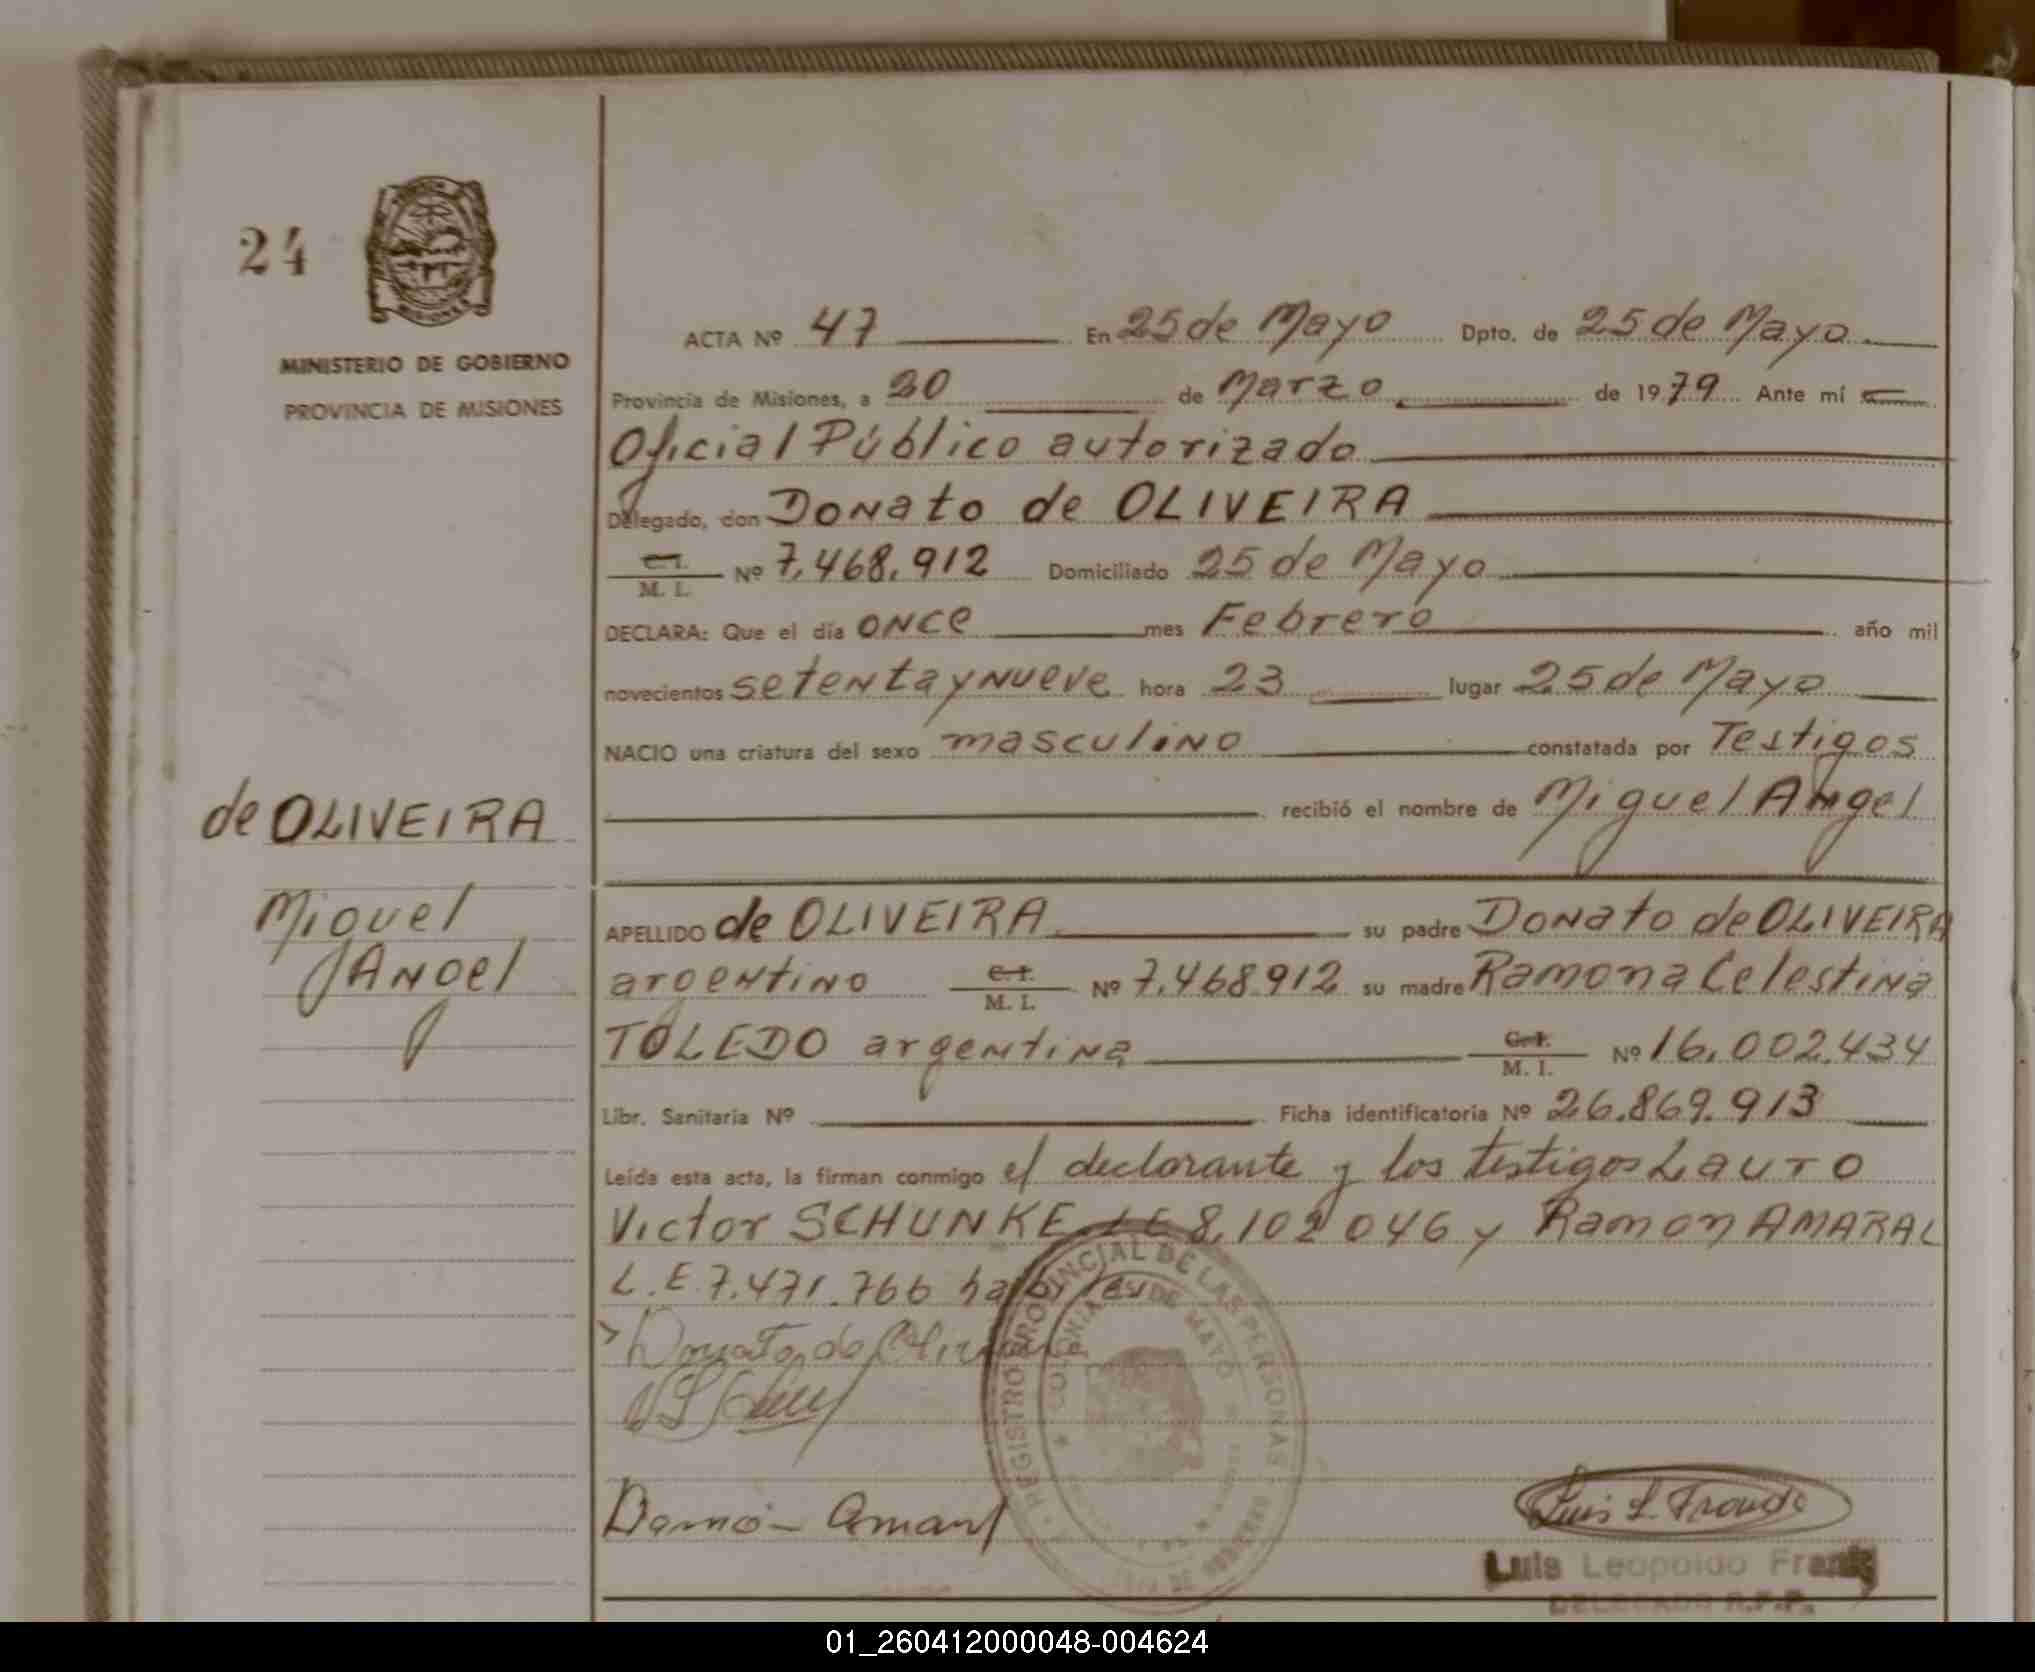 24
MINISTERIO DE GOBIERNO
PROVINCIA DE MISIONES
ACTA Nº 47 En 25 de Mayo Dpto. de 25 de Mayo
Provincia de Misiones, a 20 de Marzo de 1979 Ante mí
Oficial Público autorizado
Delegado, don Donato de OLIVEIRA
C. I. / M. I. Nº 7.468.912 Domiciliado 25 de Mayo
DECLARA: Que el día once mes Febrero año mil
novecientos setenta y nueve hora 23 lugar 25 de Mayo
NACIO una criatura del sexo masculino constatada por Testigos
recibió el nombre de Miguel Angel
de OLIVEIRA
Miguel
Angel
APELLIDO de OLIVEIRA su padre Donato de OLIVEIRA
argentino C. I. / M. I. Nº 7.468.912 su madre Ramona Celestina
TOLEDO argentina C. I. / M. I. Nº 16.002.434
Libr. Sanitaria Nº Ficha identificatoria Nº 26.869.913
Leída esta acta, la firman conmigo el declarante y los testigos Lauro
Victor SCHUNKE L E 8.102 046 y Ramon AMARAL
L. E 7.471.766
Donato de
REGISTRO PROVINCIAL DE LAS PERSONAS
COLONIA 25 DE MAYO
Ramón Amaral
Luis L. Frank
Luis Leopoldo Frank
DELEGADO R.P.P.
01_260412000048-004624